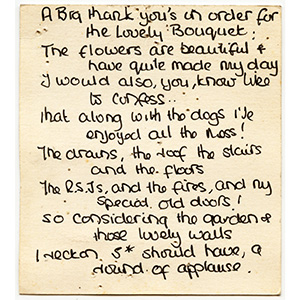 A Big thank you's in order for
the Lovely Bouquet;
The flowers are beautiful &
have quite made my day
I would also, you, know like
to confess...
that along with the dogs I've
enjoyed all the mess!
The drains, the roof the stairs
and the floors
The R.S.Js, and the fires, and my
special old doors!
So considering the garden &
those lovely walls
I reckon 5* should have, a
round of applause.